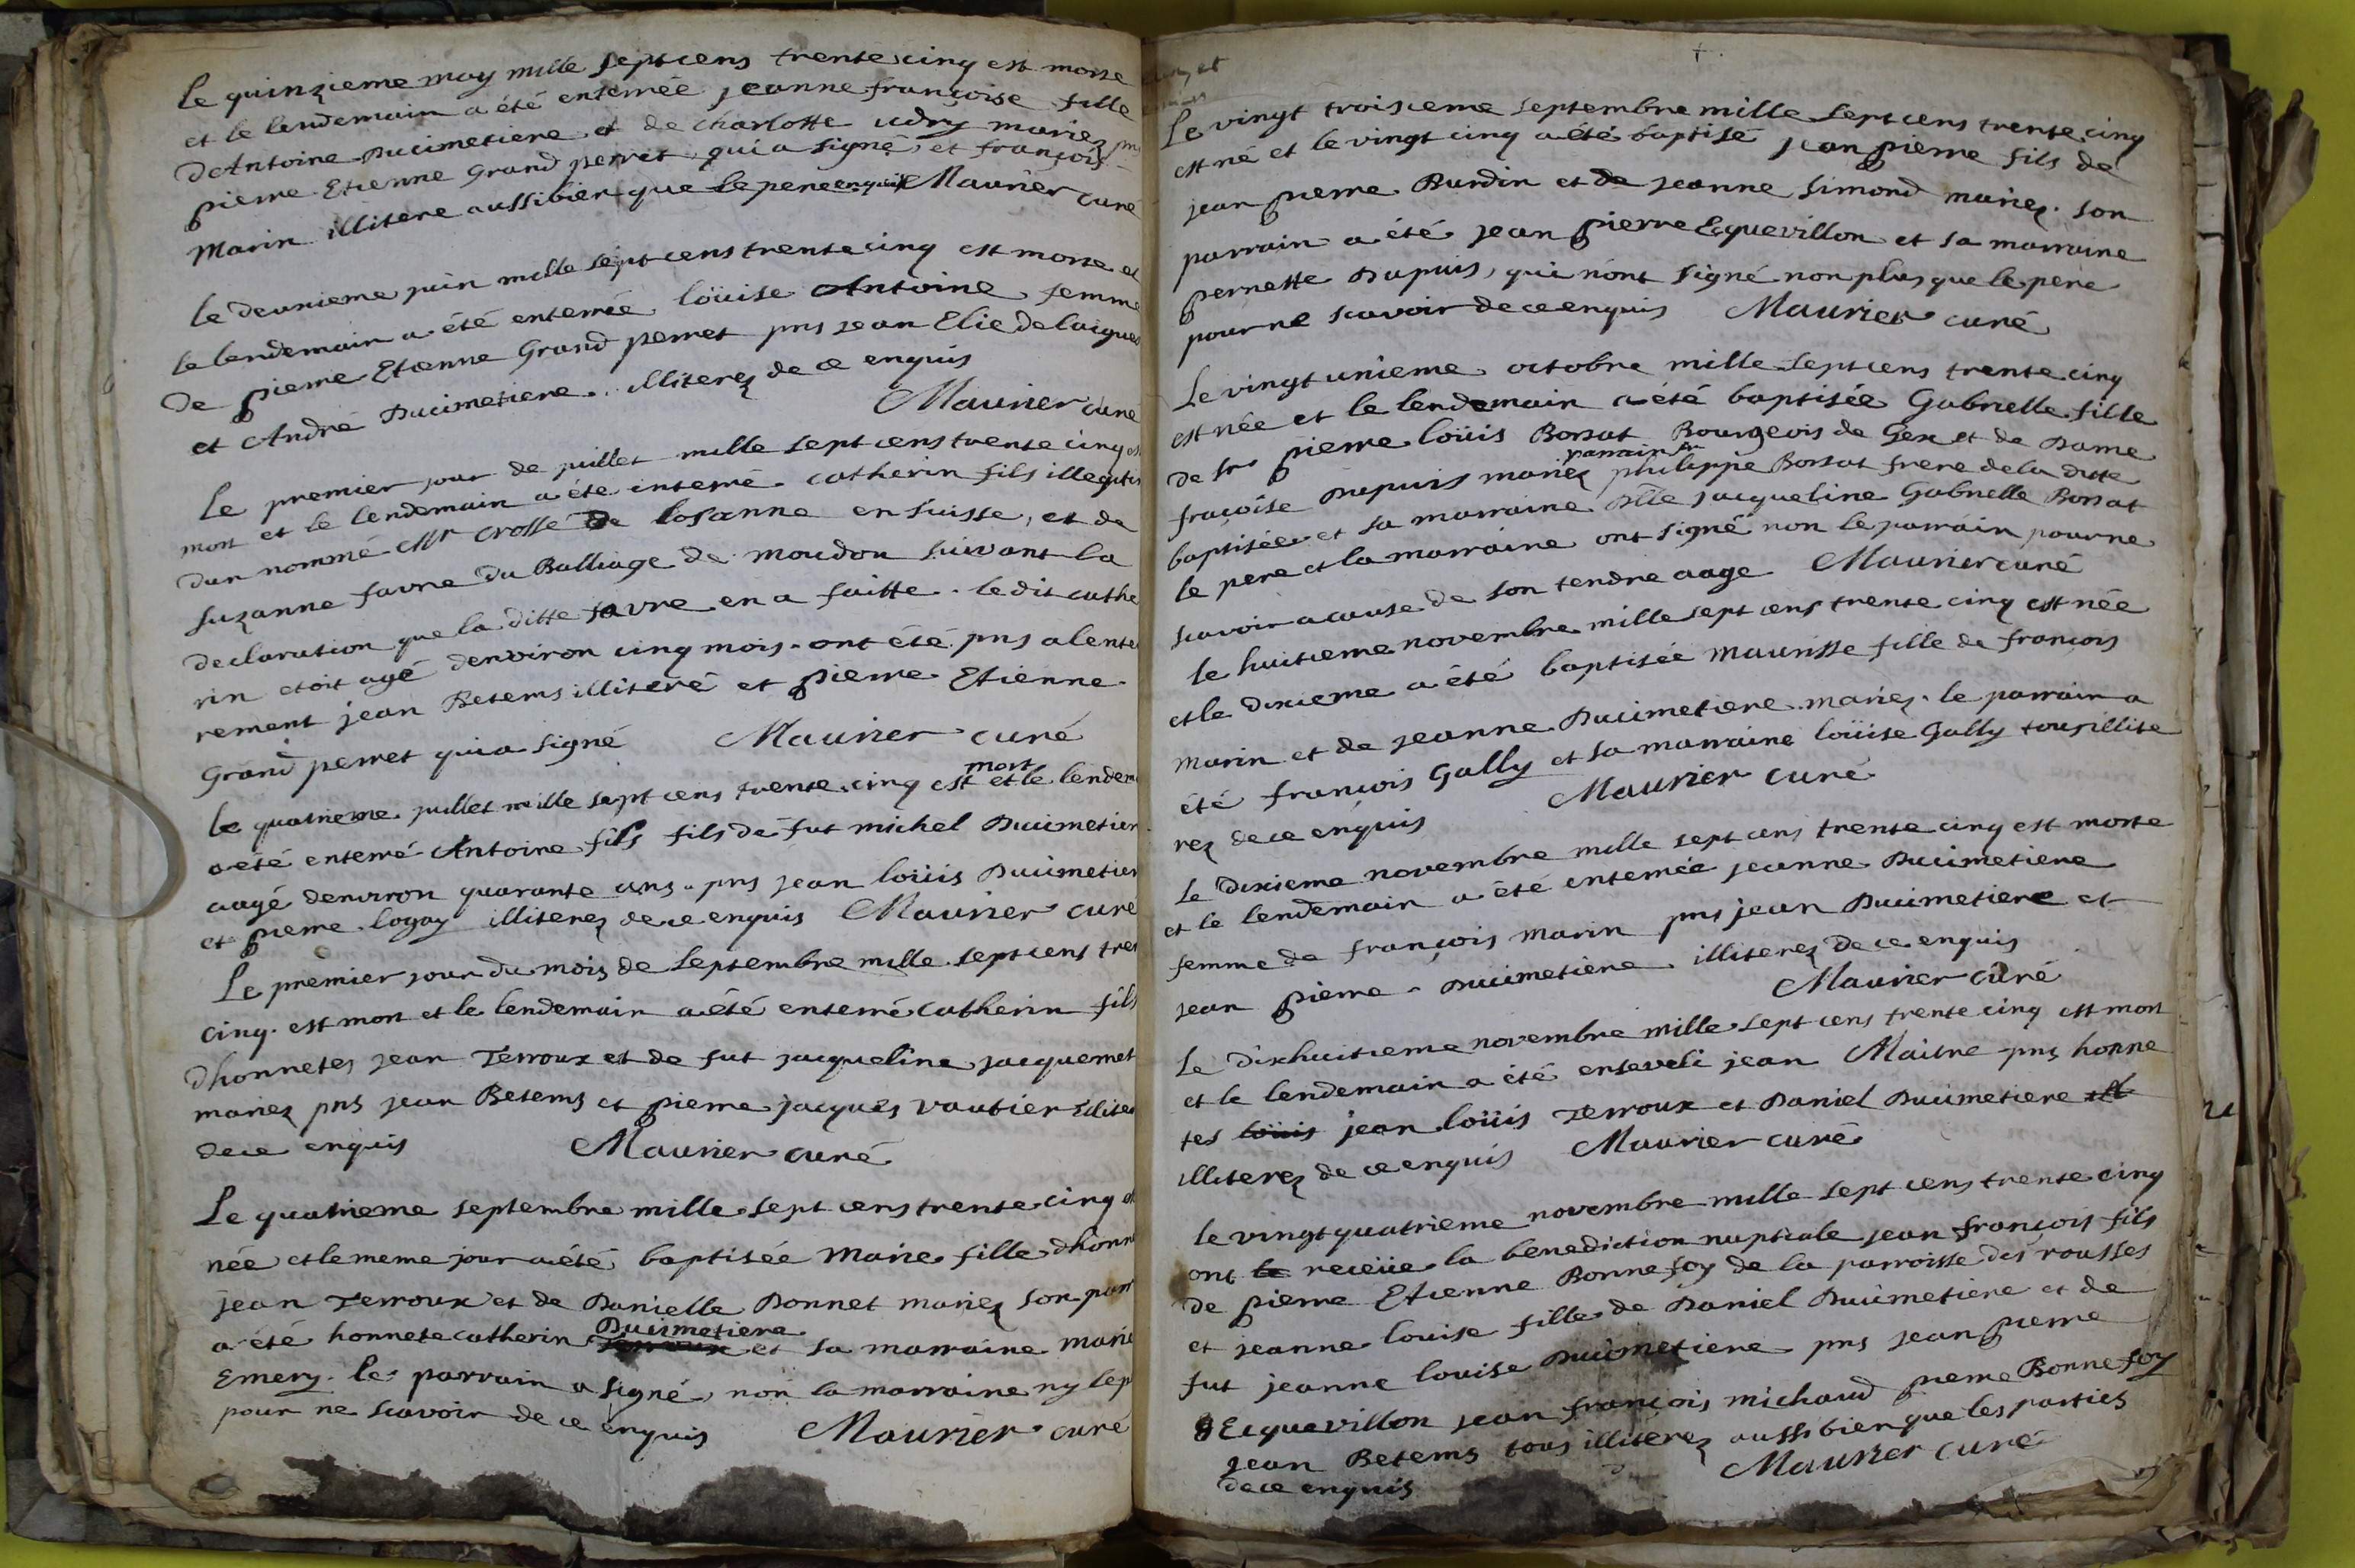 Le quinzieme may mille sept cens trente cinq est morte
et le lendemain a été enterrée jeanne françoise fille
d'Antoine Ducimetiere et de charlotte udry mariez pns
pierre Etienne Grand perret qui a signé, et françois
Marin illitere aussi bien que le pere enquis Maurier curé
le deuxieme juin mille sept cens trente cinq est morte et
le lendemain a été enterrée loüise Antoine femme
de pierre Etienne Grand perret pns jean Elie Delaigues
et André Ducimetiere illiterez de ce enquis
Maurier curé
Le premier jour de juillet mille sept cens trente cinq
mort et le lendemain a été enterré catherin fils illegiti
d'un nommé Mr crosse de losanne en suisse, et de
suzanne favre du Balliage de moudon suivant la
declaration que la ditte favre en a faitte. le dit cathe
rin etoit agé denviron cinq mois. ont été pns a lente
rement jean Betems illiteré et pierre Etienne
Grand perret qui a signé Maurier curé
le quatrieme juillet mille sept cens trente cinq est mort et le lendem
a été enterré Antoine fils fils de fut michel Ducimetier
aagé denviron quarante ans. pns jean loüis Ducimetier
et pierre logay illiterez de ce enquis Maurier curé
Le premier jour du mois de septembre mille sept cens tren
cinq. est mort et le lendemain a été enterré catherin fils
dhonnetes jean Terroux et de fut jacqueline jacquemet
mariez pns jean Betems et pierre jacques vautier illiter
de ce enquis Maurier curé
Le quatrieme septembre mille sept cens trente cinq
née et le meme jour a été baptisée Marie fille dhonn
jean Terroux et de Danielle Donnet mariez son parr
a été honnete catherin Ducimetiere et sa marraine marie
Emery. le parrain a signé, non la marraine ny le p
pour ne scavoir de ce enquis Maurier curé
Le vingt troisieme septembre mille sept cens trente cinq
est né et le vingt cinq a été baptisé jean pierre fils de
jean pierre Burdin et de jeanne simond mariez. son
parrain a été jean pierre Ecquevillon et sa marraine
pernette Dupuis, qui n'ont signé non plus que le pere
pour ne scavoir de ce enquis Maurier curé
Le vingt unieme octobre mille sept cens trente cinq
est née et le lendemain a été baptisée Gabrielle fille
de Sr pierre loüis Borsat Bourgeois de Gex et de Dame
fraçoise Dupuis mariez parrain philippe Borsat frere de la ditte
baptisée et sa marraine Dlle jacqueline Gabrielle Borsat
le pere et la marraine ont signé non le parrain pour ne
scavoir a cause de son tendre aage Maurier curé
le huitieme novembre mille sept cens trente cinq est née
et le dixieme a été baptisée maurisse fille de françois
Marin et de jeanne Ducimetiere mariez. le parrain a
été françois Gally et sa marraine loüise Gally tous illite
rez de ce enquis Maurier curé
Le dixieme novembre mille sept cens trente cinq est morte
et le lendemain a été enterrée jeanne Ducimetiere
femme de françois Marin pns jean Ducimetiere et
jean pierre Ducimetiere illiterez de ce enquis
Maurier curé
Le dixhuitieme novembre mille sept cens trente cinq est mort
et le lendemain a été enseveli jean Maitre pns honne
tes loüis jean loüis Terroux et Daniel Ducimetiere
illiterez de ce enquis Maurier curé
le vingt quatrieme novembre mille sept cens trente cinq
ont receüe la benediction nuptiale jean françois fils
de pierre Etienne Bonnefoy de la parroisse des rousses
et jeanne louise fille de Daniel Ducimetiere et de
fut jeanne louise Ducimetiere pns jean pierre
Ecquevillon jean françois michaud pierre Bonnefoy
jean Betems tous illiterez aussi bien que les parties
de ce enquis Maurier curé